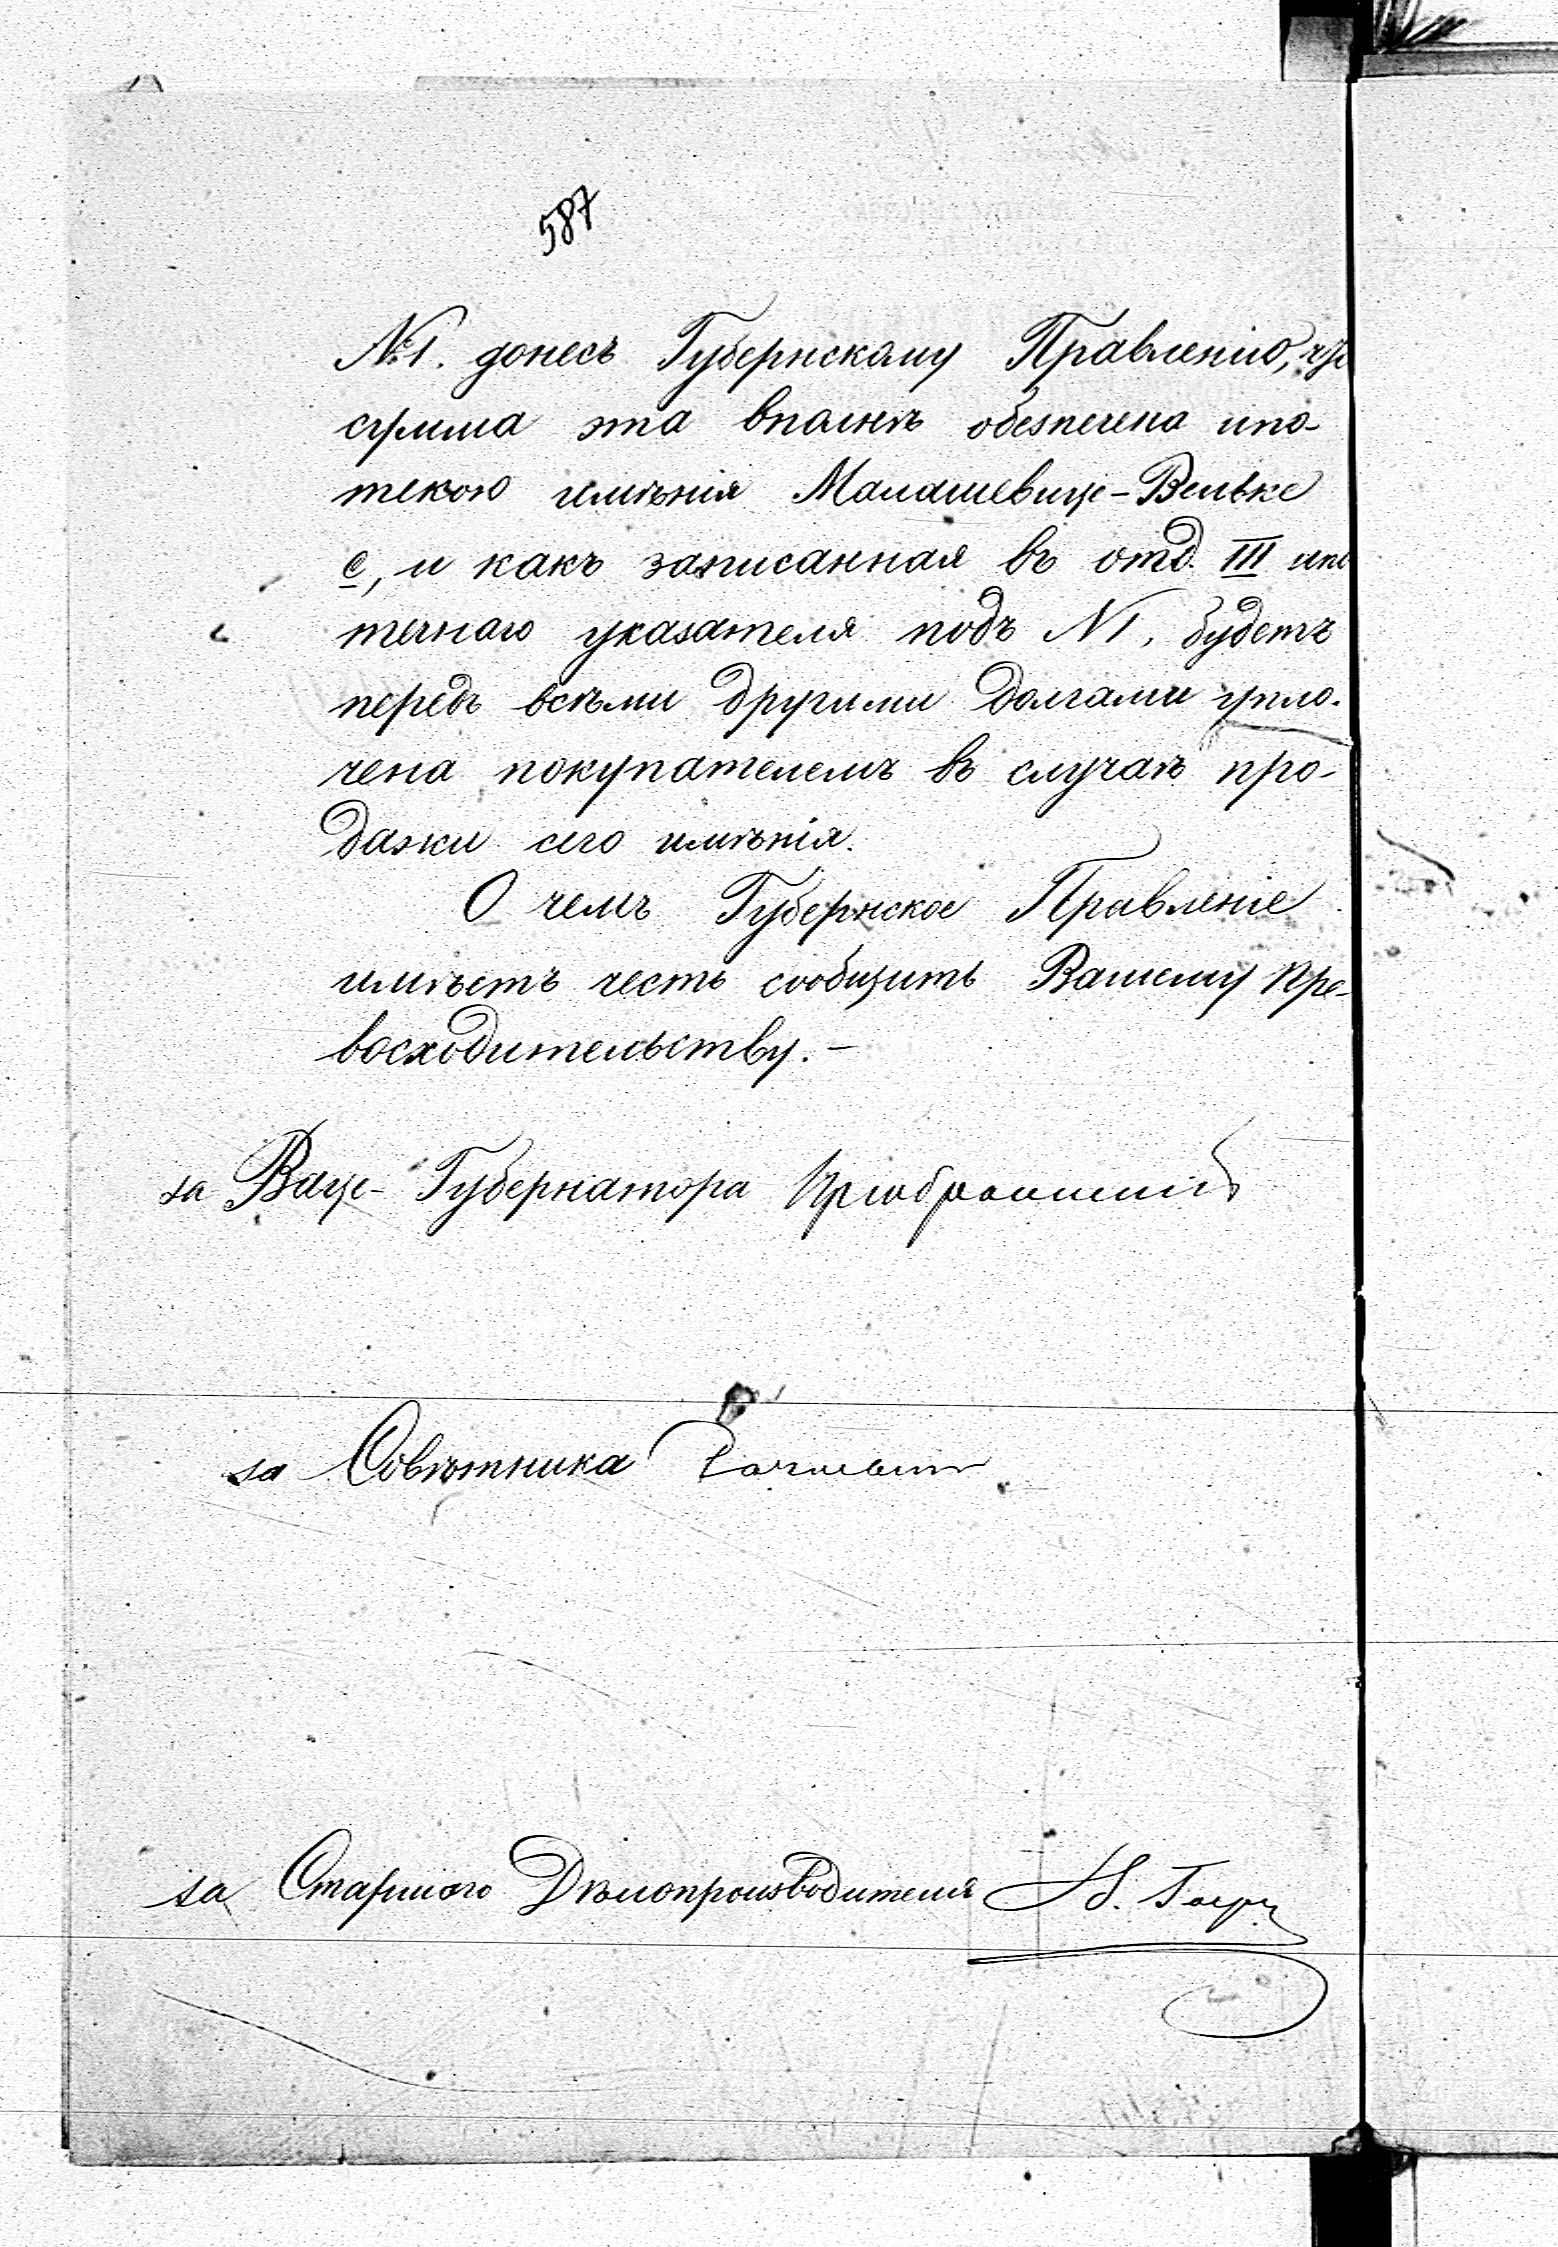 587
№1. донесъ Губернскому Правленію, что
сумма эта вполнѣ обезпечена ипо-
текою имѣнія Малашевице-Вельке
с, и какъ записанная въ отд. III ипо
течнаго указателя подъ №1, будетъ
передъ всѣми другими долгами упла-
чена покупателемъ въ случаѣ про-
дажи сего имѣнія.
О чемъ Губернское Правленіе
имѣетъ честь сообщить Вашему Пре-
восходительству. —
за Вице-Губернатора
за Совѣтника
за Старшаго Дѣлопроизводителя